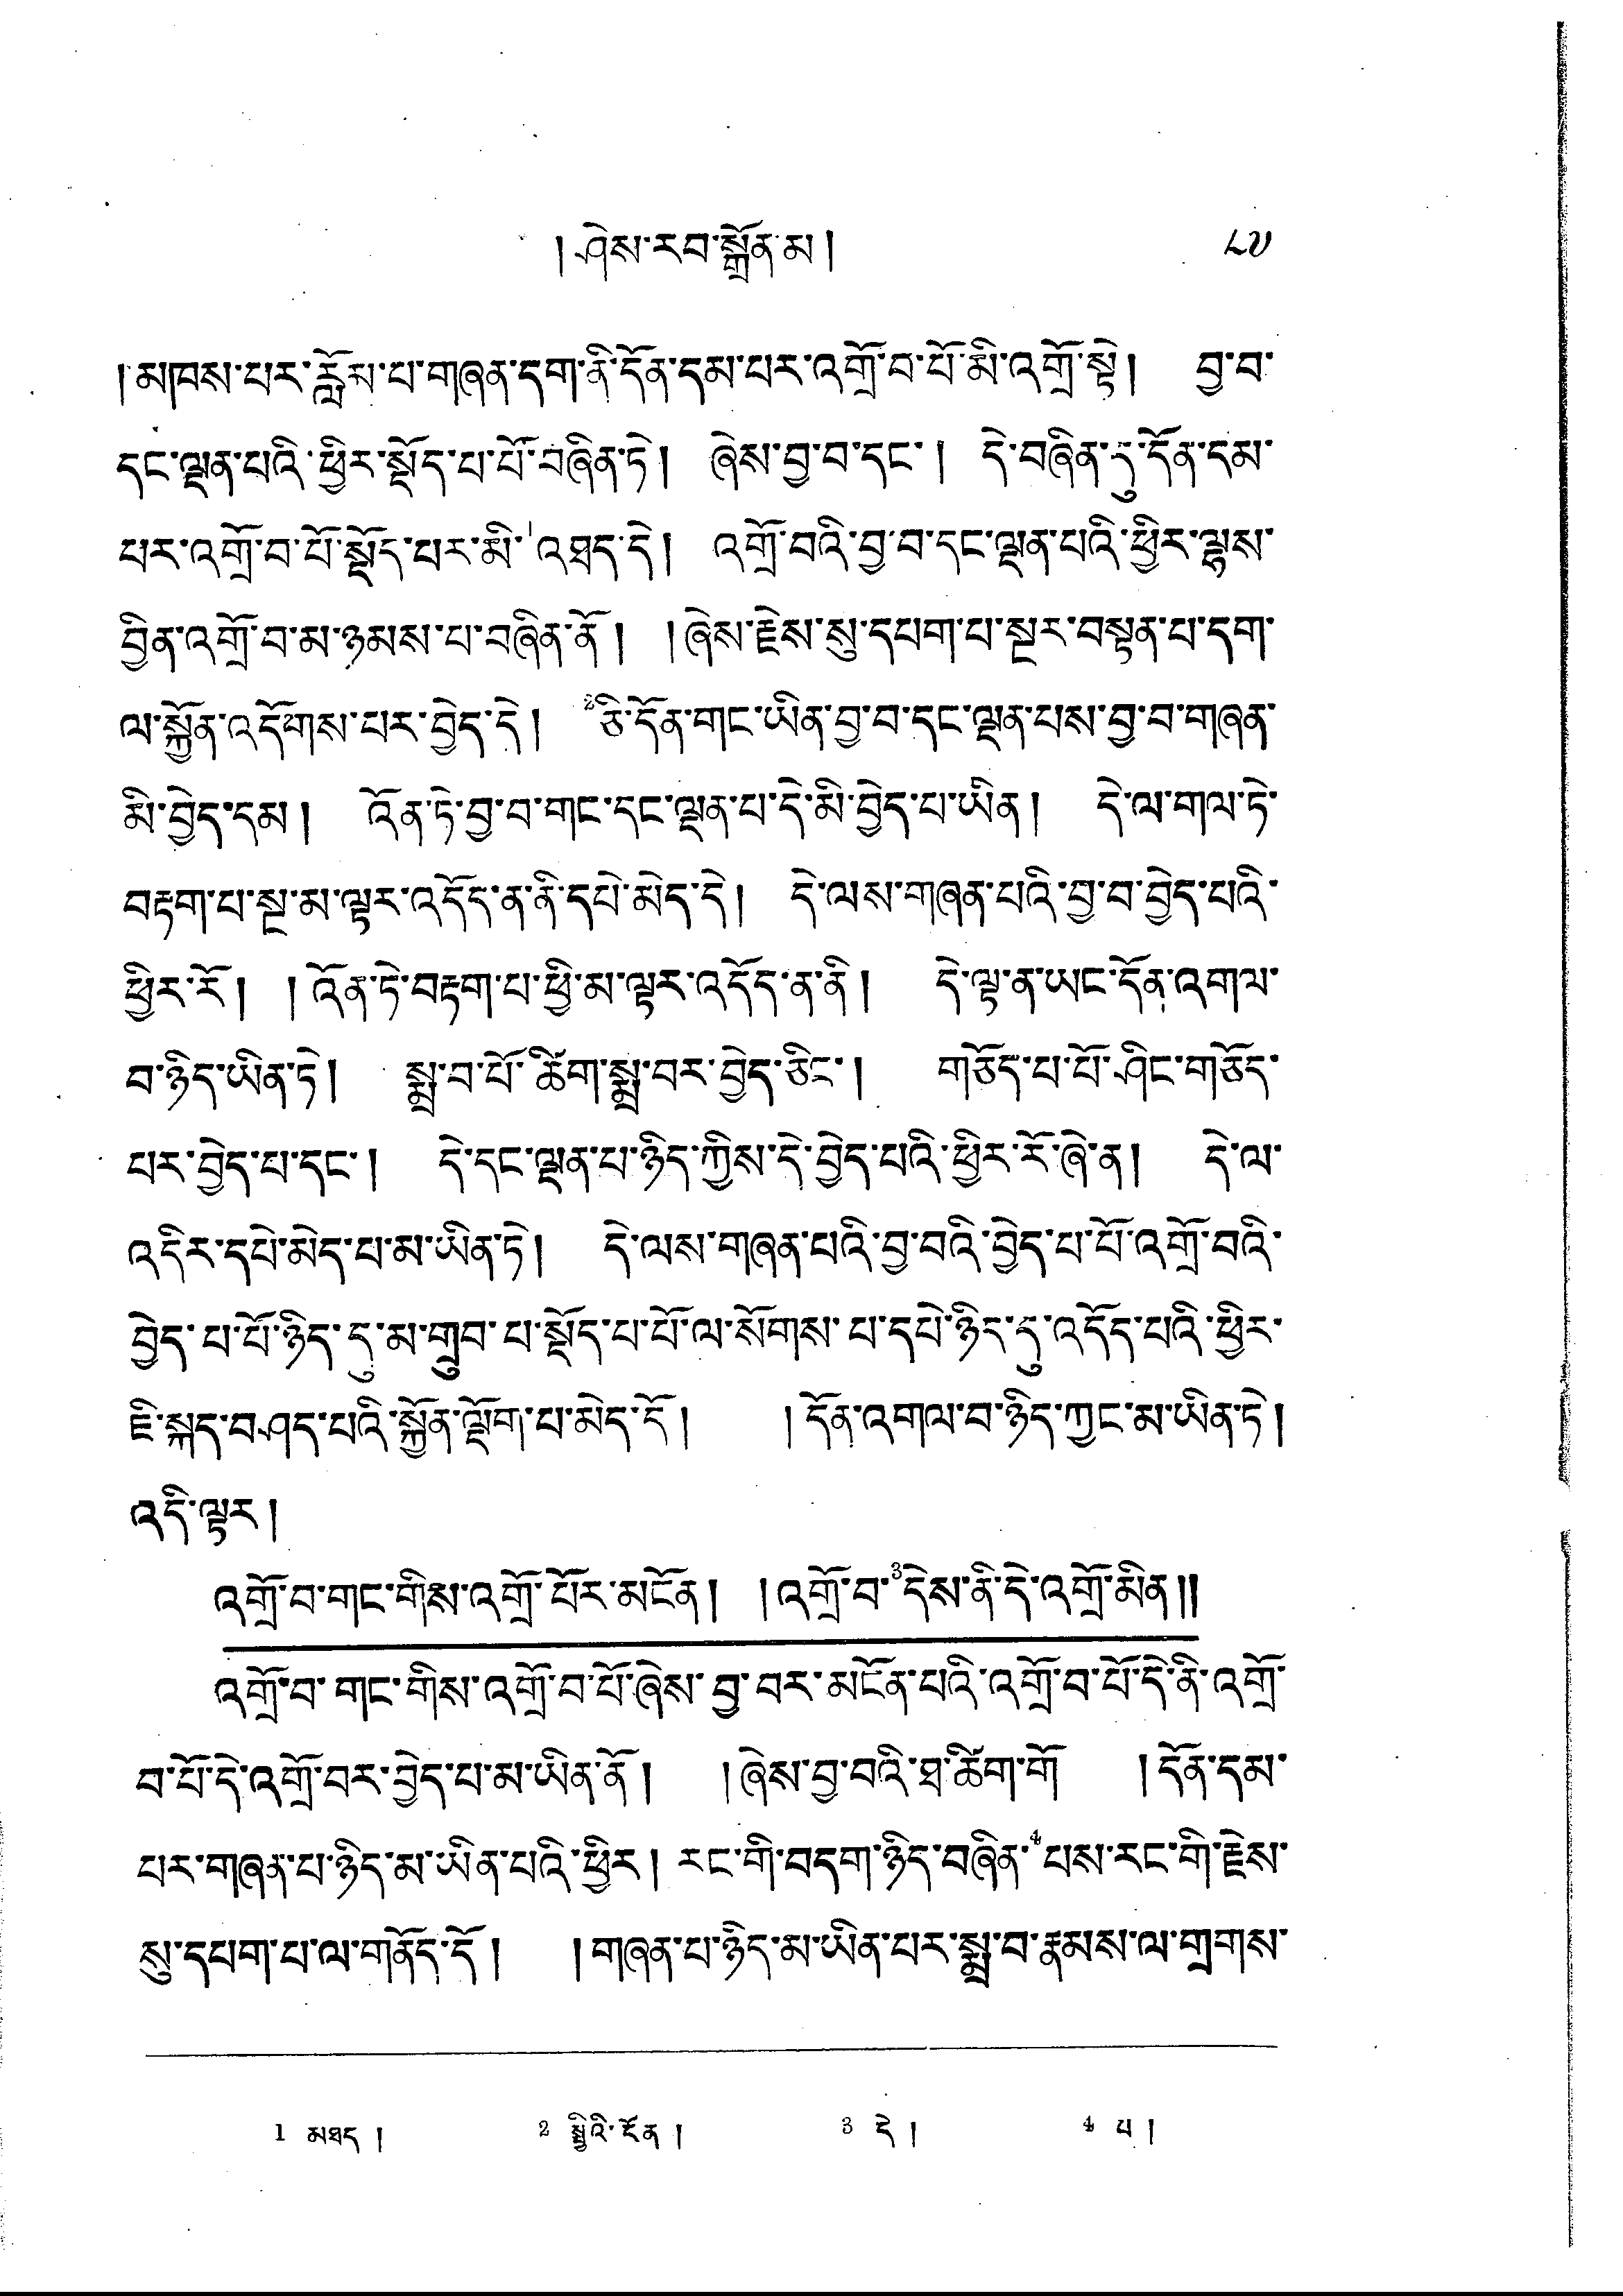 ། ཤེས་རབ་སྒྲོན་མ །
༨༥
།མཁས་པར་རློམ་པ་གཞན་དག་ནི་དོན་དམ་པར་འགྲོ་བ་པོ་མི་འགྲོ་སྟེ། བྱ་བ་
དང་ལྡན་པའི་ཕྱིར་སྡོད་པ་པོ་བཞིན་ཏེ། ཞེས་བྱ་བ་དང་། དེ་བཞིན་དུ་དོན་དམ་
པར་འགྲོ་བ་པོ་སྡོད་པར་མི་¹འཐད་དེ། འགྲོ་བའི་བྱ་བ་དང་ལྡན་པའི་ཕྱིར་ལྷས་
བྱིན་འགྲོ་བ་མ་ཉམས་པ་བཞིན་ནོ། །ཞེས་རྗེས་སུ་དཔག་པ་སྔར་བསྟན་པ་དག་
ལ་སྐྱོན་འདོགས་པར་བྱེད་དེ། ²ཅི་དོན་གང་ཡིན་བྱ་བ་དང་ལྡན་པས་བྱ་བ་གཞན་
མི་བྱེད་དམ། འོན་ཏེ་བྱ་བ་གང་དང་ལྡན་པ་དེ་མི་བྱེད་པ་ཡིན། དེ་ལ་གལ་ཏེ་
བརྟག་པ་སྔ་མ་ལྟར་འདོད་ན་ནི་དཔེ་མེད་དེ། དེ་ལས་གཞན་པའི་བྱ་བ་བྱེད་པའི་
ཕྱིར་རོ། །འོན་ཏེ་བརྟག་པ་ཕྱི་མ་ལྟར་འདོད་ན་ནི། དེ་ལྟ་ན་ཡང་དོན་འགལ་
བ་ཉིད་ཡིན་ཏེ། སྨྲ་བ་པོ་ཚིག་སྨྲ་བར་བྱེད་ཅིང་། གཅོད་པ་པོ་ཤིང་གཅོད་
པར་བྱེད་པ་དང་། དེ་དང་ལྡན་པ་ཉིད་ཀྱིས་དེ་བྱེད་པའི་ཕྱིར་རོ་ཞེ་ན། དེ་ལ་
འདིར་དཔེ་མེད་པ་མ་ཡིན་ཏེ། དེ་ལས་གཞན་པའི་བྱ་བའི་བྱེད་པ་པོ་འགྲོ་བའི་
བྱེད་པ་པོ་ཉིད་དུ་མ་གྲུབ་པ་སྡོད་པ་པོ་ལ་སོགས་པ་དཔེ་ཉིད་དུ་འདོད་པའི་ཕྱིར་
ཇི་སྐད་བཤད་པའི་སྐྱོན་ལྡོག་པ་མེད་དོ། །དོན་འགལ་བ་ཉིད་ཀྱང་མ་ཡིན་ཏེ།
འདི་ལྟར།
འགྲོ་བ་གང་གིས་འགྲོ་པོར་མངོན། །འགྲོ་བ་³དེས་ནི་དེ་འགྲོ་མིན།།
འགྲོ་བ་གང་གིས་འགྲོ་བ་པོ་ཞེས་བྱ་བར་མངོན་པའི་འགྲོ་བ་པོ་དེ་ནི་འགྲོ་
བ་པོ་དེ་འགྲོ་བར་བྱེད་པ་མ་ཡིན་ནོ། །ཞེས་བྱ་བའི་ཐ་ཚིག་གོ །དོན་དམ་
པར་གཞན་པ་ཉིད་མ་ཡིན་པའི་ཕྱིར། རང་གི་བདག་ཉིད་བཞིན་⁴པས་རང་གི་རྗེས་
སུ་དཔག་པ་ལ་གནོད་དོ། །གཞན་པ་ཉིད་མ་ཡིན་པར་སྨྲ་བ་རྣམས་ལ་གྲགས་
1 མཐད །
2 སྤྱིའི་དོན །
3 དེ །
4 པ །